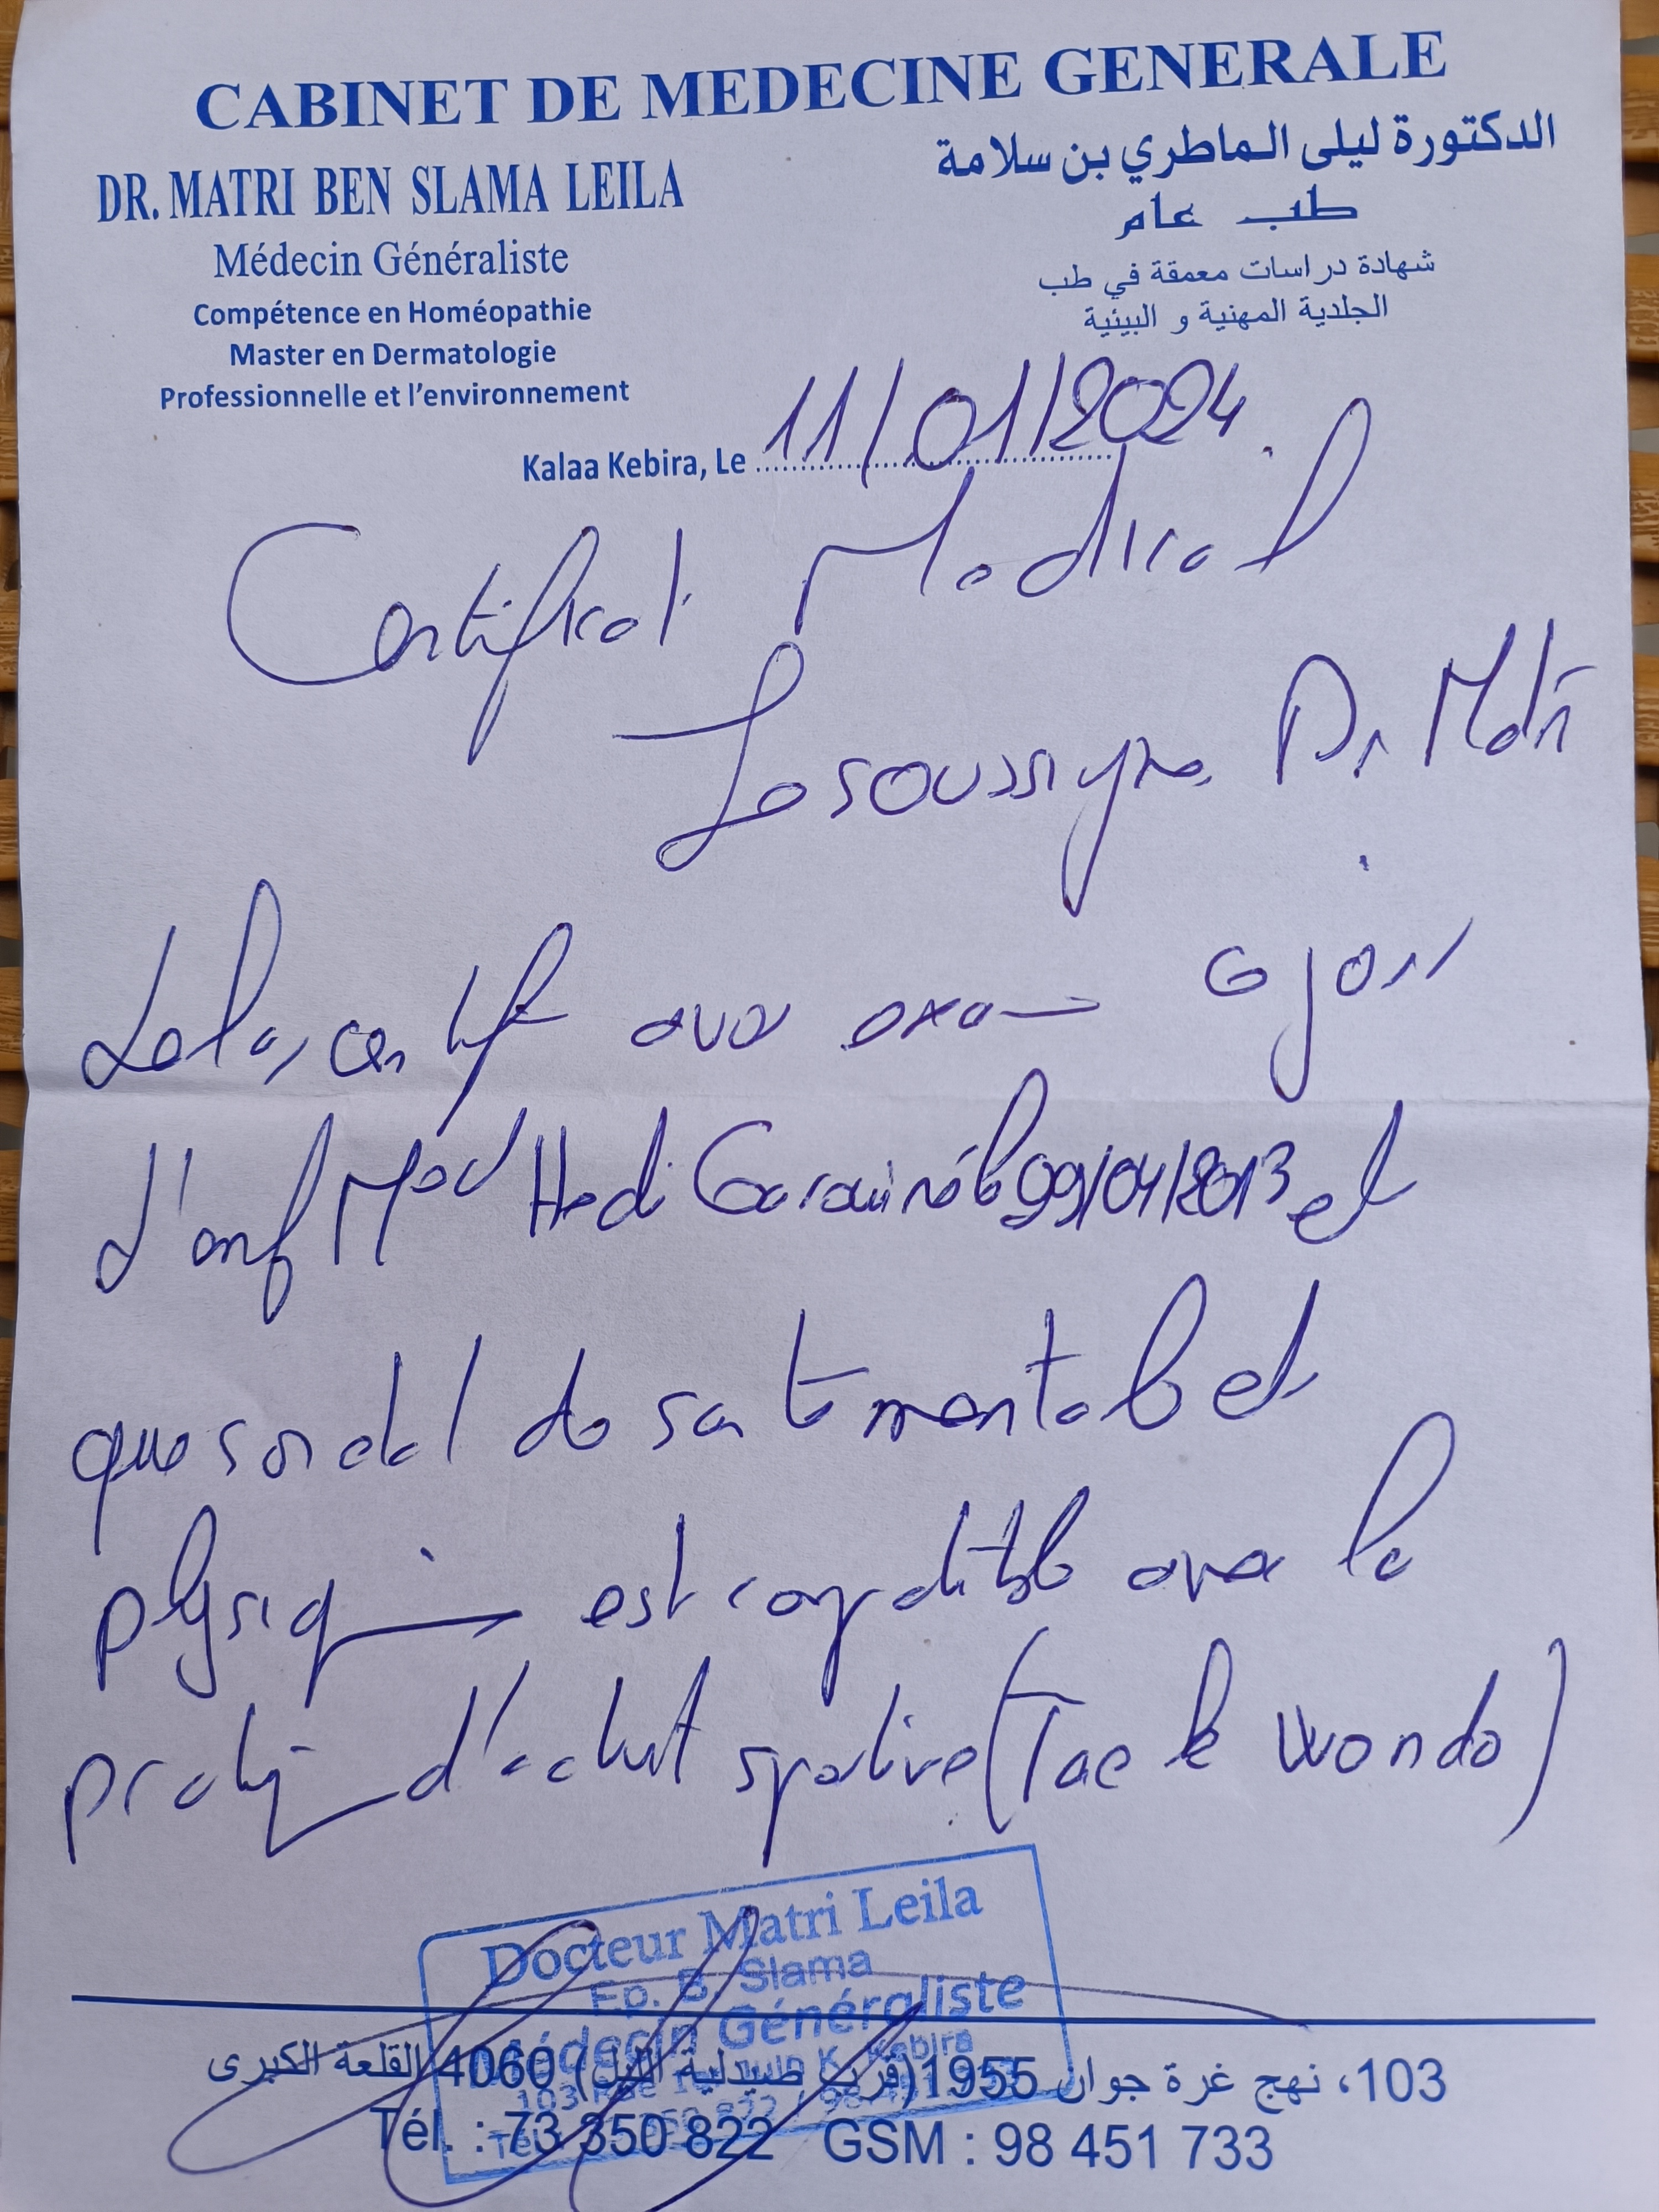 CABINET DE MEDECINE GENERALE
DR. MATRI BEN SLAMA LEILA
Médecin Généraliste
Compétence en Homéopathie
Master en Dermatologie
Professionnelle et l'environnement
الدكتورة ليلى الماطري بن سلامة
طب عام
شهادة دراسات معمقة في طب
الجلدية المهنية و البيئية
Kalaa Kebira, Le 11/01/2024
Certificat Medical
Je soussigne Dr Matri
Leila, certif avoir exam ce jour
l'enf Med Hedi né le 09/04/2013 et
que son etat de sante mentale et
physique est compatible avec la
pratique d'activit sportive (Tae k wondo)
Docteur Matri Leila
Ep. B. Slama
Médecin Généraliste
103، نهج غرة جوان 1955 (قرب صيدلية الليل) 4060 القلعة الكبرى
Tél. : 73 350 822 GSM : 98 451 733